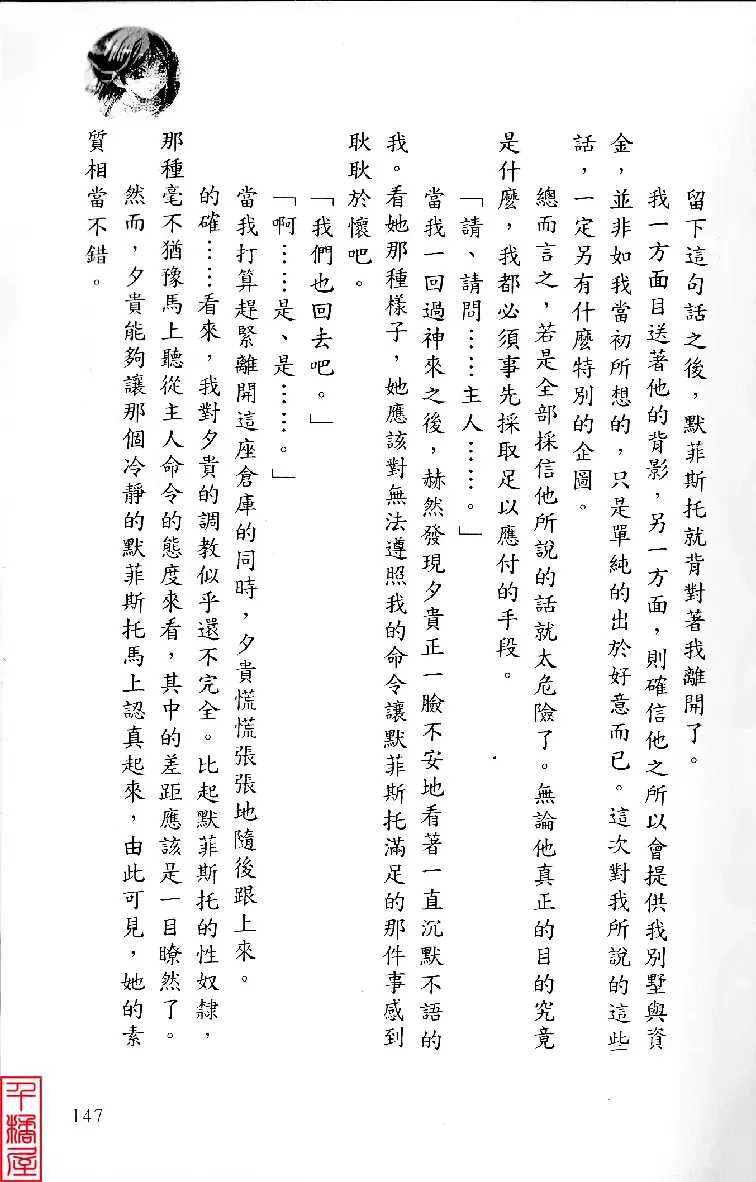 留下這句話之後，默菲斯托就背對著我離開了。
我一方面目送著他的背影，另一方面，則確信他之所以會提供我別墅與資
金，並非如我當初所想的，只是單純的出於好意而已。這次對我所說的這些
話，一定另有什麼特別的企圖。
總而言之，若是全部採信他所說的話就太危險了。無論他真正的目的究竟
是什麼，我都必須事先採取足以應付的手段。
「請、請問……主人……。」
當我一回過神來之後，赫然發現夕貴正一臉不安地看著一直沉默不語的
我。看她那種樣子，她應該對無法遵照我的命令讓默菲斯托滿足的那件事感到
耿耿於懷吧。
「我們也回去吧。」
「啊……是、是……。」
當我打算趕緊離開這座倉庫的同時，夕貴慌慌張張地隨後跟上來。
的確……看來，我對夕貴的調教似乎還不完全。比起默菲斯托的性奴隸，
那種毫不猶豫馬上聽從主人命令的態度來看，其中的差距應該是一目瞭然了。
然而，夕貴能夠讓那個冷靜的默菲斯托馬上認真起來，由此可見，她的素
質相當不錯。
147
千橘屋